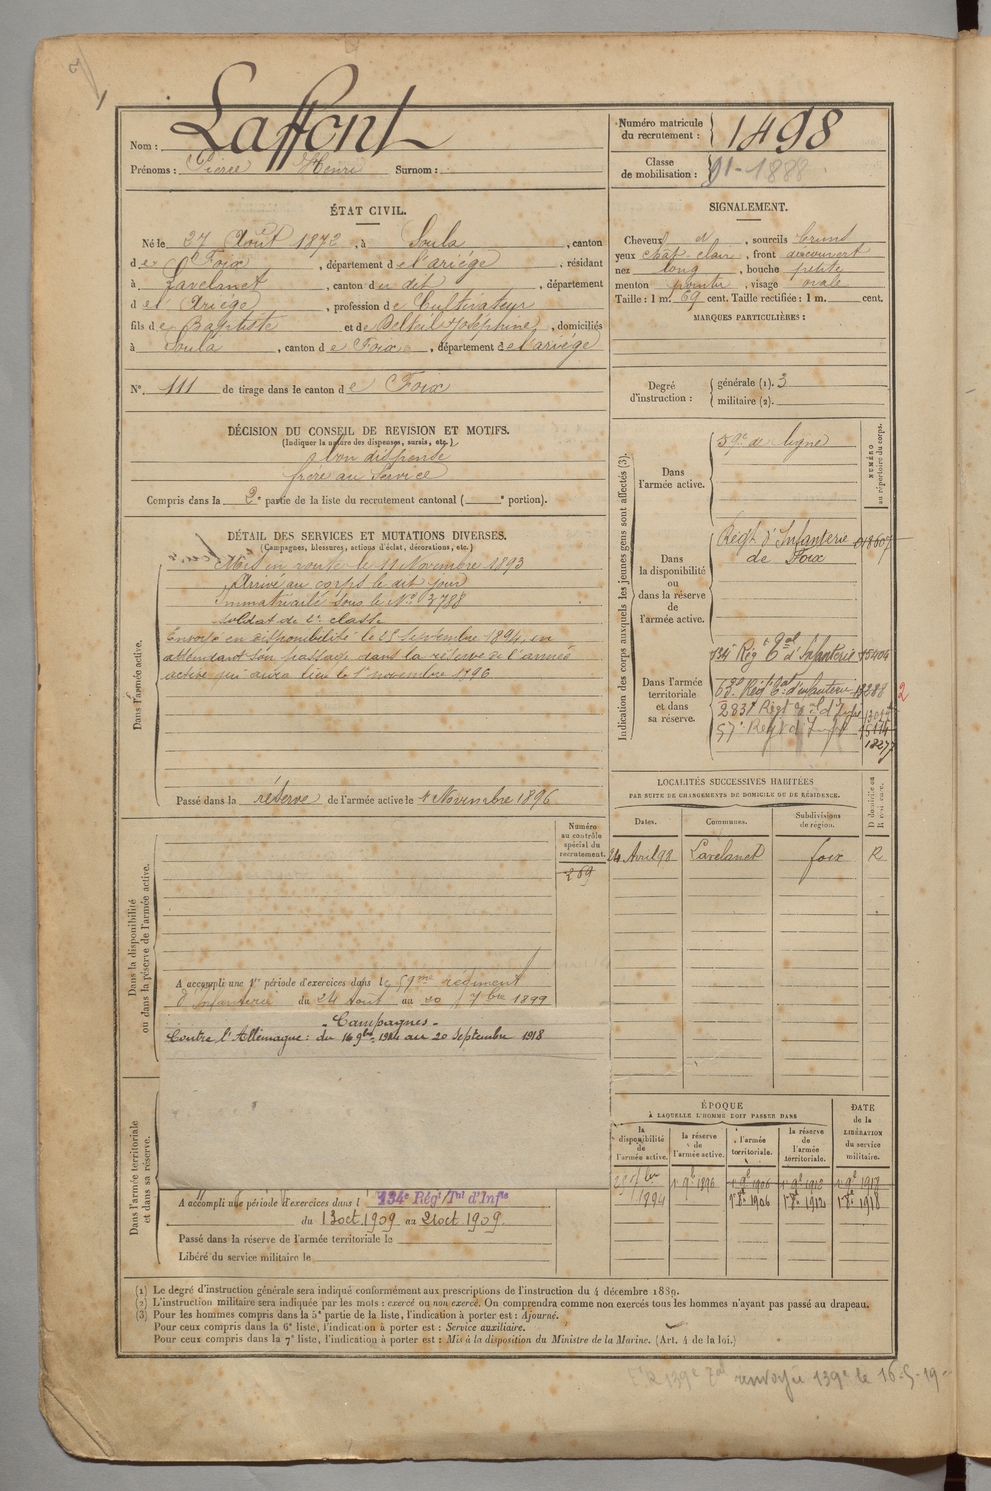 Nom : Laffont
Prénoms : Pierre Henri Surnom :
Numéro matricule du recrutement : 1498
Classe de mobilisation : 91-1888
ÉTAT CIVIL.
Né le 27 Août 1872, à Soula, canton
de Foix, département de l'ariège, résidant
à Lavelanet, canton du dit, département
de l'Ariège, profession de Cultivateur
fils de Baptiste et de Joséphine, domiciliés
à Soula, canton de Foix, département de l'ariège
No. 111 de tirage dans le canton de Foix
DÉCISION DU CONSEIL DE REVISION ET MOTIFS.
(Indiquer la nature des dispenses, sursis, etc.)
bon dispensé
frère au Service
Compris dans la 2e partie de la liste du recrutement cantonal ( e portion).
SIGNALEMENT.
Cheveux d, sourcils bruns
yeux chat. clair, front découvert
nez long, bouche petite
menton pointu, visage ovale
Taille : 1 m. 69 cent. Taille rectifiée : 1 m. cent.
MARQUES PARTICULIÈRES :
Degré d'instruction :
générale (1). 3
militaire (2).
DÉTAIL DES SERVICES ET MUTATIONS DIVERSES.
(Campagnes, blessures, actions d'éclat, décorations, etc.)
Dans l'armée active.
Mis en route le 11 Novembre 1893
Arrivé au corps le dit jour
Immatriculé sous le No 3788
soldat de 2e classe
Envoyé en disponibilité le 25 Septembre 1894, en
attendant son passage dans la réserve de l'armée
active qui aura lieu le 1er novembre 1896
Passé dans la réserve de l'armée active le 1 Novembre 1896
Indication des corps auxquels les jeunes gens sont affectés (3).
NUMÉRO au répertoire du corps.
Dans l'armée active.
59e de ligne
Dans la disponibilité ou dans la réserve de l'armée active.
Régt d'Infanterie de Foix
Dans l'armée territoriale et dans sa réserve.
134e Rég tal d'Infanterie 15404
2
57e Régt d'Infie
18277
LOCALITÉS SUCCESSIVES HABITÉES
PAR SUITE DE CHANGEMENTS DE DOMICILE OU DE RÉSIDENCE.
Dates. Communes. Subdivisions de région. D domicile ou R résidence.
24 Avril 98 Lavelanet foix R
Dans la disponibilité ou dans la réserve de l'armée active.
Numéro au contrôle spécial du recrutement.
269
A accompli une 1re période d'exercices dans le 59me régiment
d'Infanterie du 24 Aout au 20 7bre 1899
- Campagnes -
Contre l'Allemagne : du 16 9bre 1914 au 20 Septembre 1918
Dans l'armée territoriale et dans sa réserve.
A accompli une période d'exercices dans l 134e Régt Tal d'Infie
du 13 oct. 1909 au 21 oct. 1909.
Passé dans la réserve de l'armée territoriale le
Libéré du service militaire le
ÉPOQUE
À LAQUELLE L'HOMME DOIT PASSER DANS
la disponibilité de l'armée active.
la réserve de l'armée active.
l'armée territoriale.
la réserve de l'armée territoriale.
DATE de la LIBÉRATION du service militaire.
25 7bre 1894
1er 9bre 1896 1er 9bre 1906 1er 9bre 1912 1er 9bre 1918
1er 8bre 1906 1er 8bre 1912 1er 8bre 1918
(1) Le degré d'instruction générale sera indiqué conformément aux prescriptions de l'instruction du 4 décembre 1889.
(2) L'instruction militaire sera indiquée par les mots : exercé ou non exercé. On comprendra comme non exercés tous les hommes n'ayant pas passé au drapeau.
(3) Pour les hommes compris dans la 5e partie de la liste, l'indication à porter est : Ajourné.
Pour ceux compris dans la 6e liste, l'indication à porter est : Service auxiliaire.
Pour ceux compris dans la 7e liste, l'indication à porter est : Mis à la disposition du Ministre de la Marine. (Art. 4 de la loi.)
139e renvoyée 139e le 16-5-19